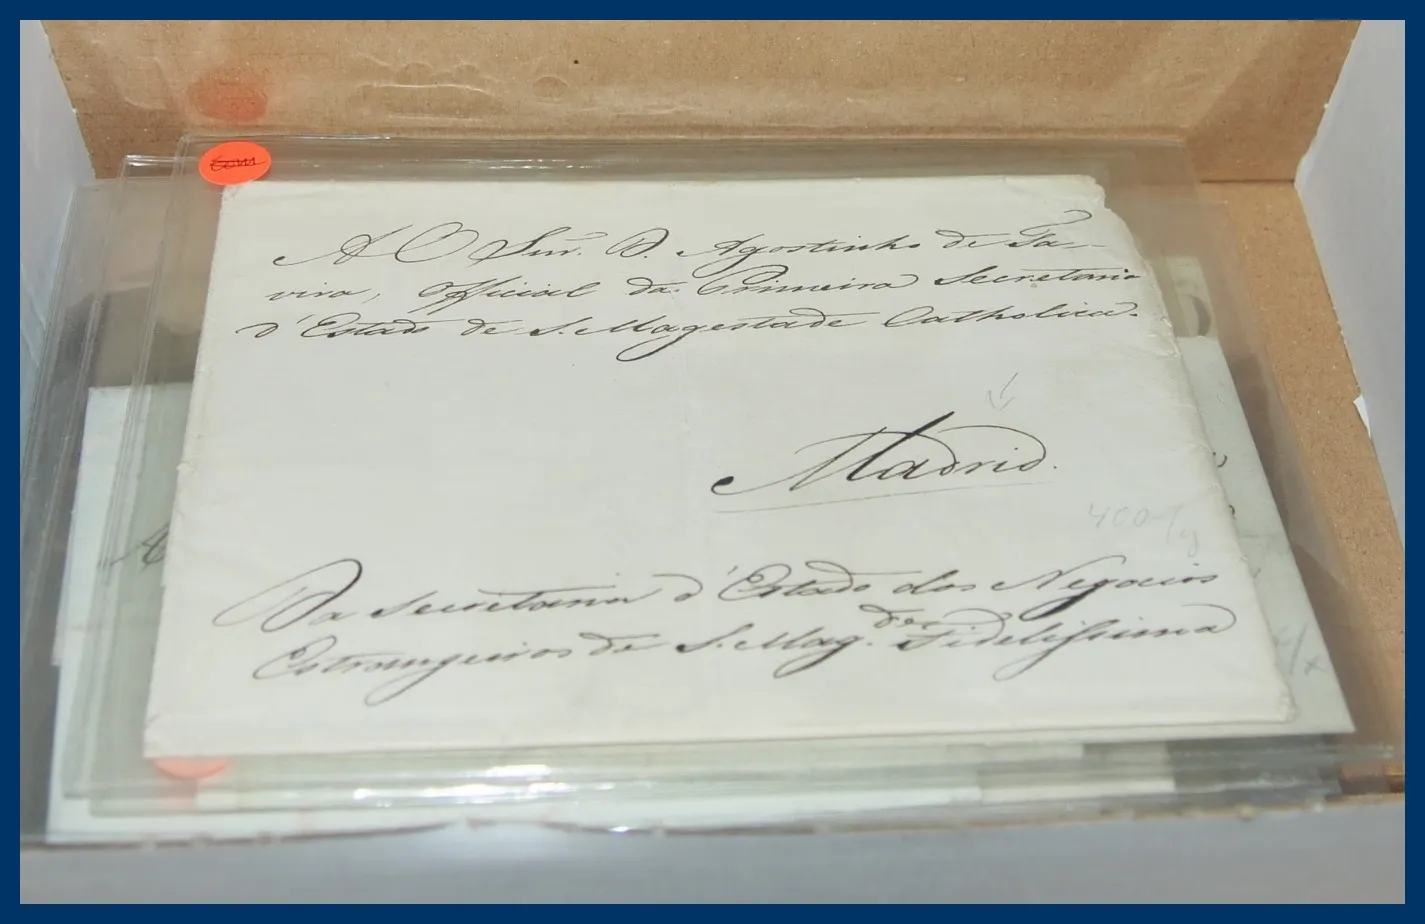 A O Snr. D. Agostinho de Ta-
vira, Official da Primeira Secretaria
d'Estado de S. Magestade Catholica.
Madrid.
400-/g
Da Secretaria d'Estado dos Negocios
Estrangeiros de S. Mag.de Fidelissima